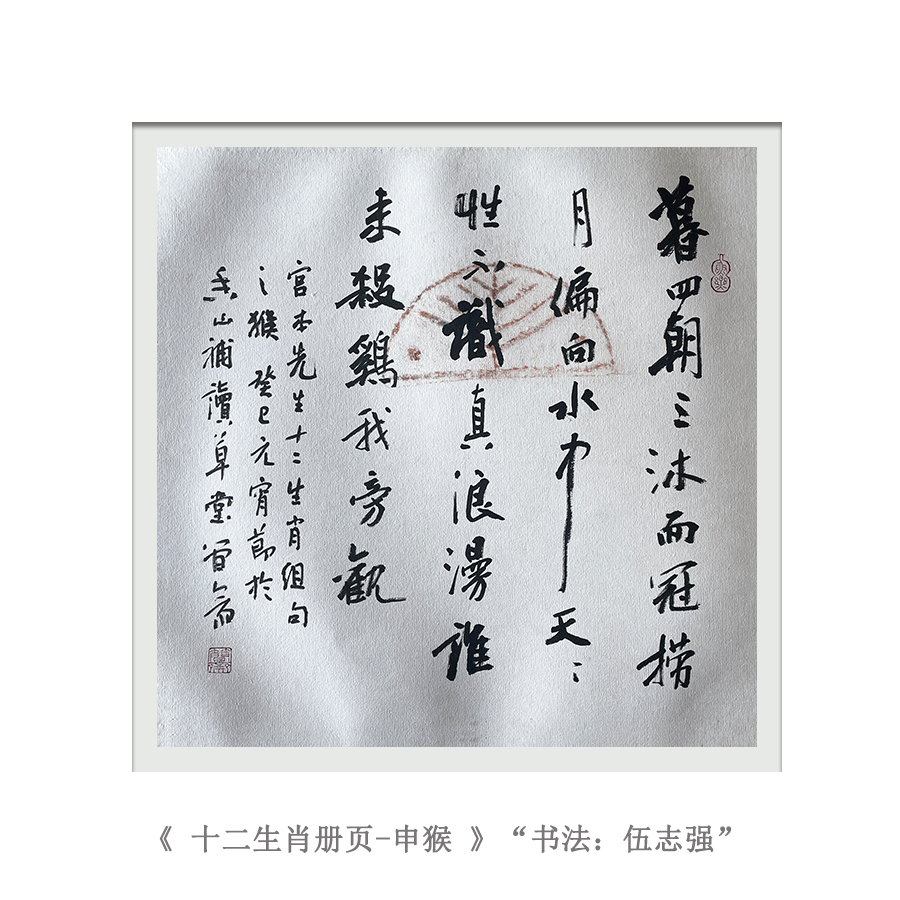 暮四朝三沐而冠捞
月偏向水中天〻
性不識真浪漫誰
来殺鷄我旁觀
宫本先生十二生肖组句
之猴 癸巳元宵節於
香山補讀草堂
《 十二生肖册页-申猴 》“书法：伍志强”